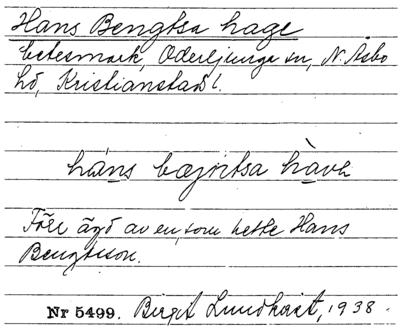 Hans Bengtsa hage
betesmark, Oderljunga sn, N. Åsbo
hd, Kristianstads l.
hàns bæjntsa hàva
Förr ägd av en, som hette Hans
Bengtsson.
Nr 5499. Birgit Lundkvist, 1938.